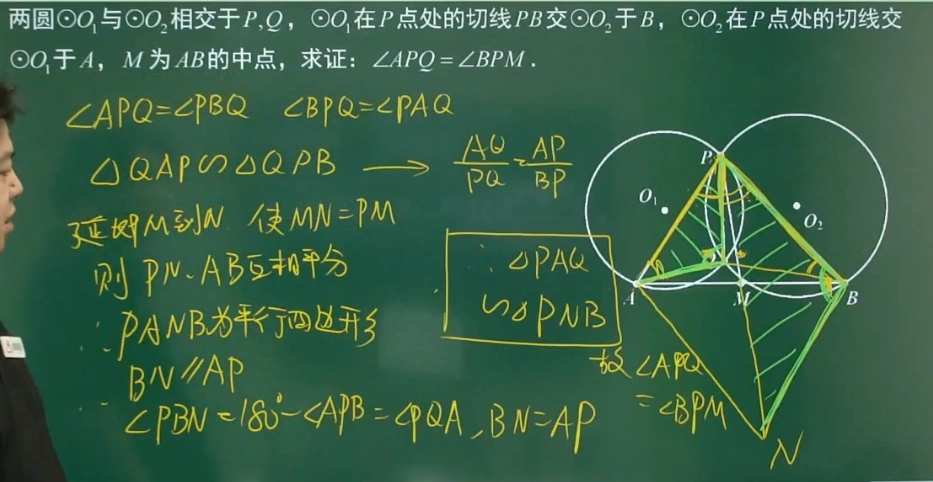 两圆⊙O₁与⊙O₂相交于P,Q，⊙O₁在P点处的切线PB交⊙O₂于B，⊙O₂在P点处的切线交
⊙O₁于A，M为AB的中点，求证：∠APQ=∠BPM.
∠APQ=∠PBQ ∠BPQ=∠PAQ
△QAP∽△QPB → AQ/PQ=AP/BP
延长PM到N 使MN=PM
则PN、AB互相平分
∴PANB为平行四边形
BN∥AP
∠PBN=180°-∠APB=∠PQA，BN=AP
∴△PAQ
∽△PNB
故∠APQ
=∠BPM
P
O₁
O₂
A
M
B
N